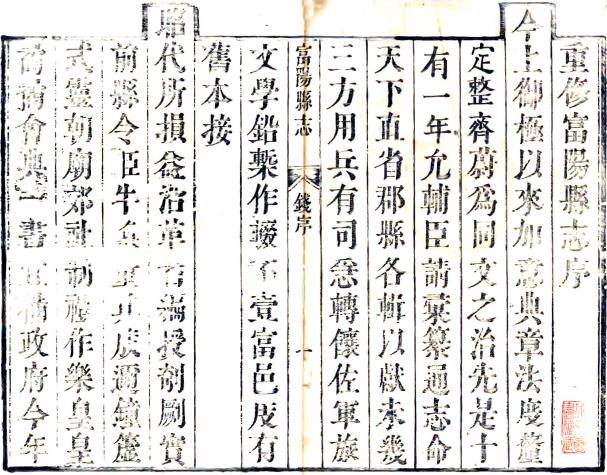 重修富陽縣志序
今上御極以來加意典章法度釐
定整齊蔚爲同文之治先是十
有一年允輔臣請彙纂通志命
天下直省郡縣各輯以獻未幾
三方用兵有司悉轉饟佐軍旅
富陽縣志 錢序 一
文學鉛槧作輟不壹富邑庋有
舊本接
昭代所損益沿革授剞劂實
前縣令臣牛辰邇鐘簴
式靈朝廟郊社制禮作樂皇皇
會典一書備政府今年